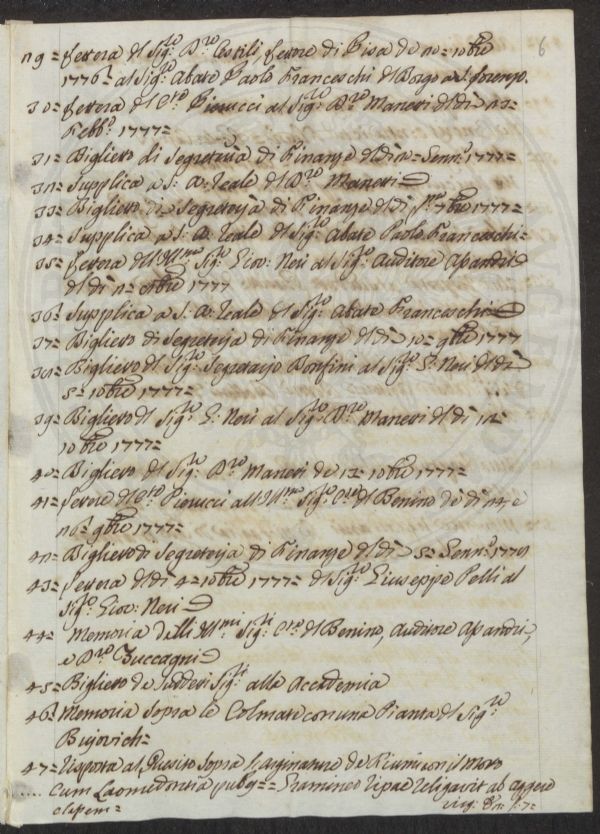 6
29= Lettera del Sig:re D:re Lettore di Pisa de 20= 10bre
1776 al Sig:re Abate Paolo Franceschi al Borgo a S: Lorenzo.
30= Lettera del C:re Pierucci al Sig:re D:re Maneri del dì 23=
Febb:o 1777=
31= Biglietto di Segreteria di Finanze del dì 2= Genn:o 1777=
32= Supplica a S: A: Reale del D:re Maneri
33= Biglietto di Segreteria di Finanze del dì P:mo 7bre 1777=
34= Supplica a S: A: Reale del Sig:re Abate Paolo Franceschi=
35= Lettera dell' Ill:mo Sig:re Giov: Neri al Sig:re Auditore
del dì 2= 8bre 1777
36= Supplica a S: A: Reale del Sig:re Abate Franceschi
37= Biglietto di Segreteria di Finanze del dì 12= 9bre 1777
38= Biglietto del Sig:re Segretario Bonfini al Sig:re G: Neri del dì
5= 10bre 1777=
39= Biglietto del Sig:re G: Neri al Sig:re D:re Maneri del dì 12=
10bre 1777=
40= Biglietto del Sig:re D:re Maneri de 13= 10bre 1777=
41= Lettere del C:re Pierucci all' Ill:mo Sig:re C:re del Benino de dì 24 e
26 9bre 1777=
42= Biglietto di Segreteria di Finanze del dì 5= Genn:o
43= Lettera del dì 4= 10bre 1777= del Sig:re Giuseppe Pelli al
Sig:re Giov: Neri
44= Memoria delli Ill:mi Sig:ri C:re del Benino, Auditore
e D:re Zuccagni
45= Biglietto de Suddetti Sig:ri alla Accademia
46= Memoria sopra le Colmate con una Pianta del Sig:re
Bujovich=
47= Risposta al Quesito sopra l'arginature de Fiumi con il Moro
.... Cum Laomedontia pube = = Gramineo ripae religavit ab aggere
classem =
Virg: Æn: l: 7=